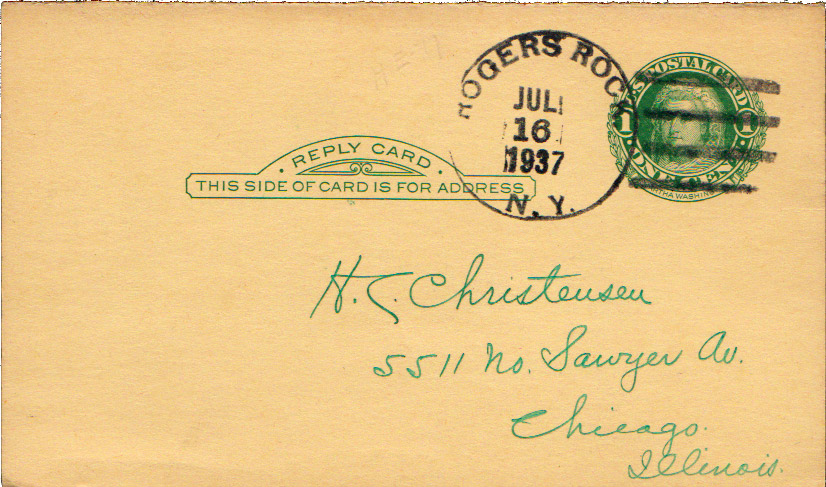 ROGERS ROCK
JUL
16
1937
N.Y.
U.S. POSTAL CARD
1 1
ONE CENT
MARTHA WASHINGTON
REPLY CARD
THIS SIDE OF CARD IS FOR ADDRESS
H. C. Christensen
5511 No. Sawyer Av.
Chicago.
Illinois.